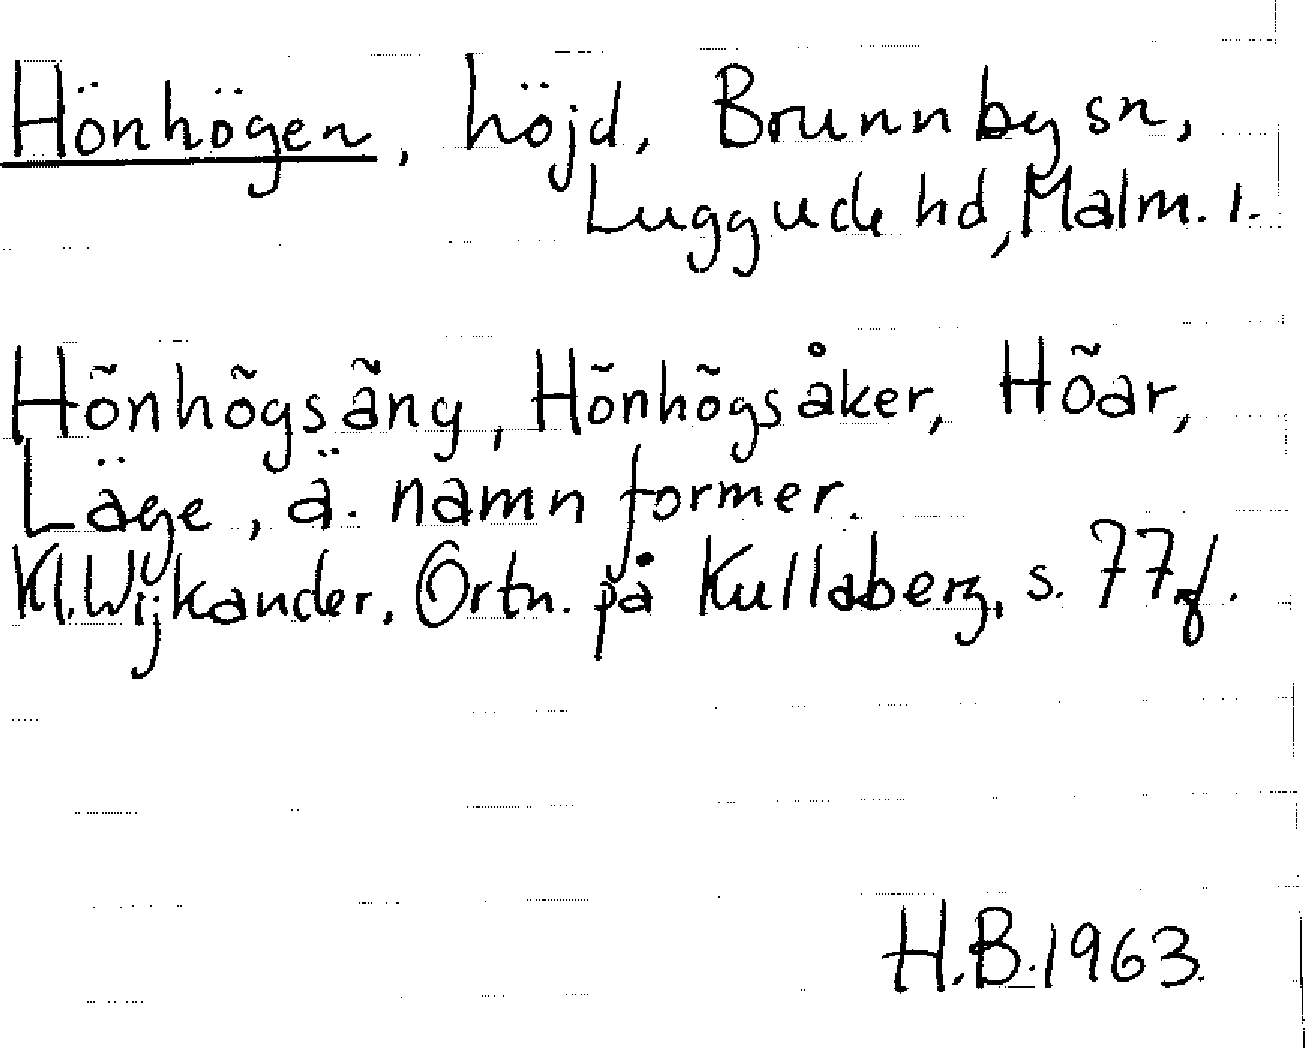 Hönhögen, höjd, Brunnby sn,
Luggude hd, Malm. l.
Hönhögsäng, Hönhögsåker, Höar,
Läge, ä. namnformer.
Kl. Wijkander, Ortn. på Kullaberg, s. 77 f.
H.B. 1963.